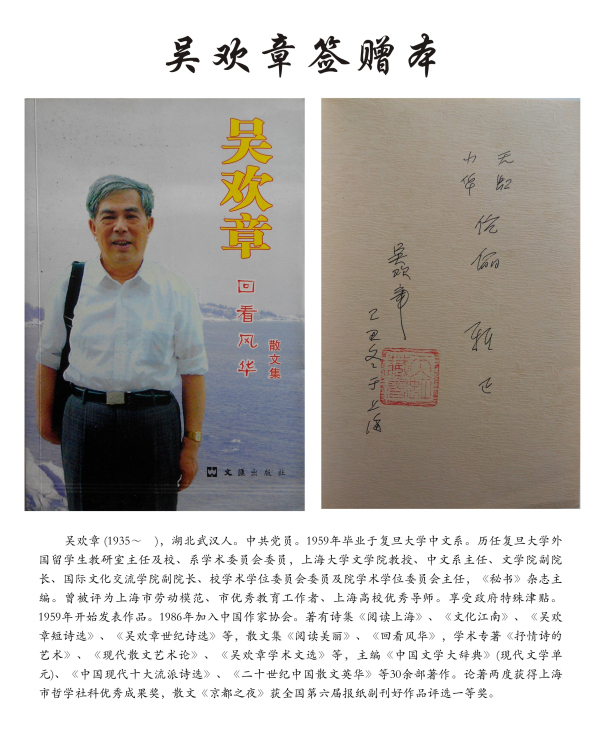 吴欢章签赠本
吴欢章
回看风华
散文集
文汇出版社
天虹
小华
伉俪 雅正
吴欢章
己丑冬于上海
吴欢章(1935～ )，湖北武汉人。中共党员。1959年毕业于复旦大学中文系。历任复旦大学外
国留学生教研室主任及校、系学术委员会委员，上海大学文学院教授、中文系主任、文学院副院
长、国际文化交流学院副院长、校学术学位委员会委员及院学术学位委员会主任，《秘书》杂志主
编。曾被评为上海市劳动模范、市优秀教育工作者、上海高校优秀导师。享受政府特殊津贴。
1959年开始发表作品。1986年加入中国作家协会。著有诗集《阅读上海》、《文化江南》、《吴欢
章短诗选》、《吴欢章世纪诗选》等，散文集《阅读美丽》、《回看风华》，学术专著《抒情诗的
艺术》、《现代散文艺术论》、《吴欢章学术文选》等，主编《中国文学大辞典》(现代文学单
元)、《中国现代十大流派诗选》、《二十世纪中国散文英华》等30余部著作。论著两度获得上海
市哲学社科优秀成果奖，散文《京都之夜》获全国第六届报纸副刊好作品评选一等奖。